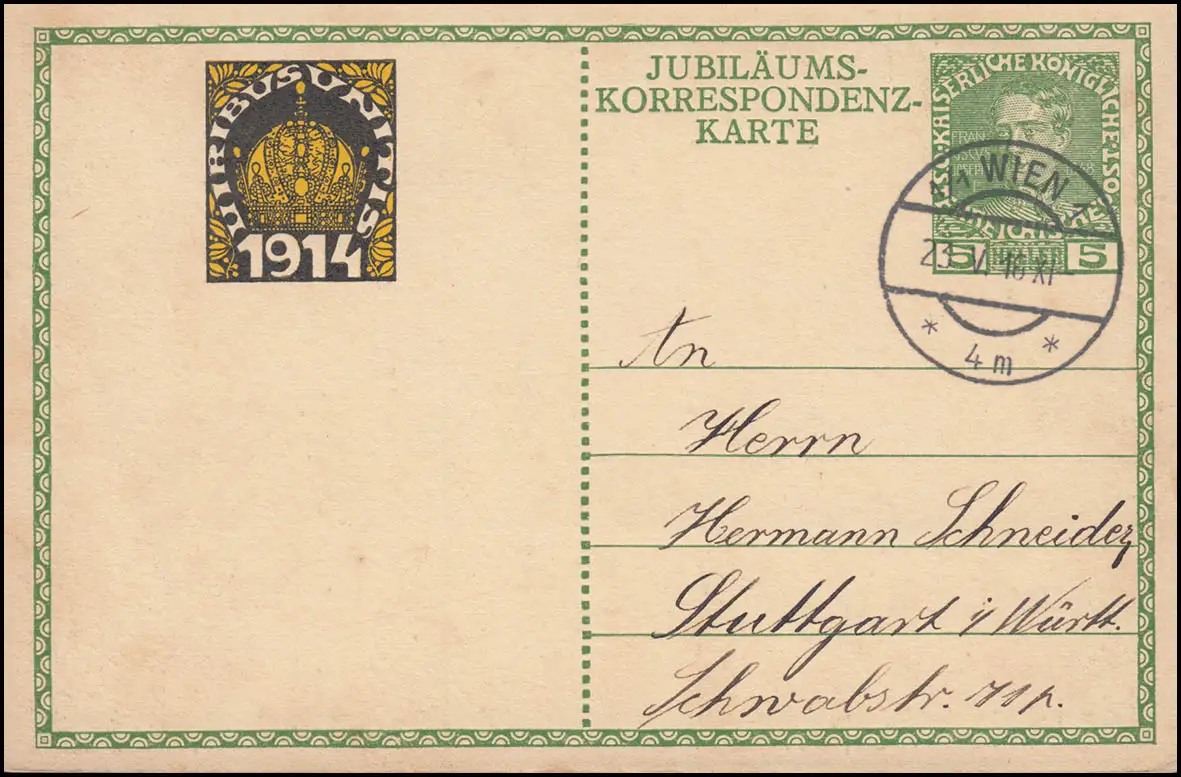 VIRIBUS UNITIS
1914
JUBILÄUMS-
KORRESPONDENZ-
KARTE
KAISERLICHE KÖNIGLICHE
5 5
WIEN
23. V. 16 XI-
* 4m *
An
Herrn
Hermann Schneider
Stuttgart i/ Württ.
Schwabstr.